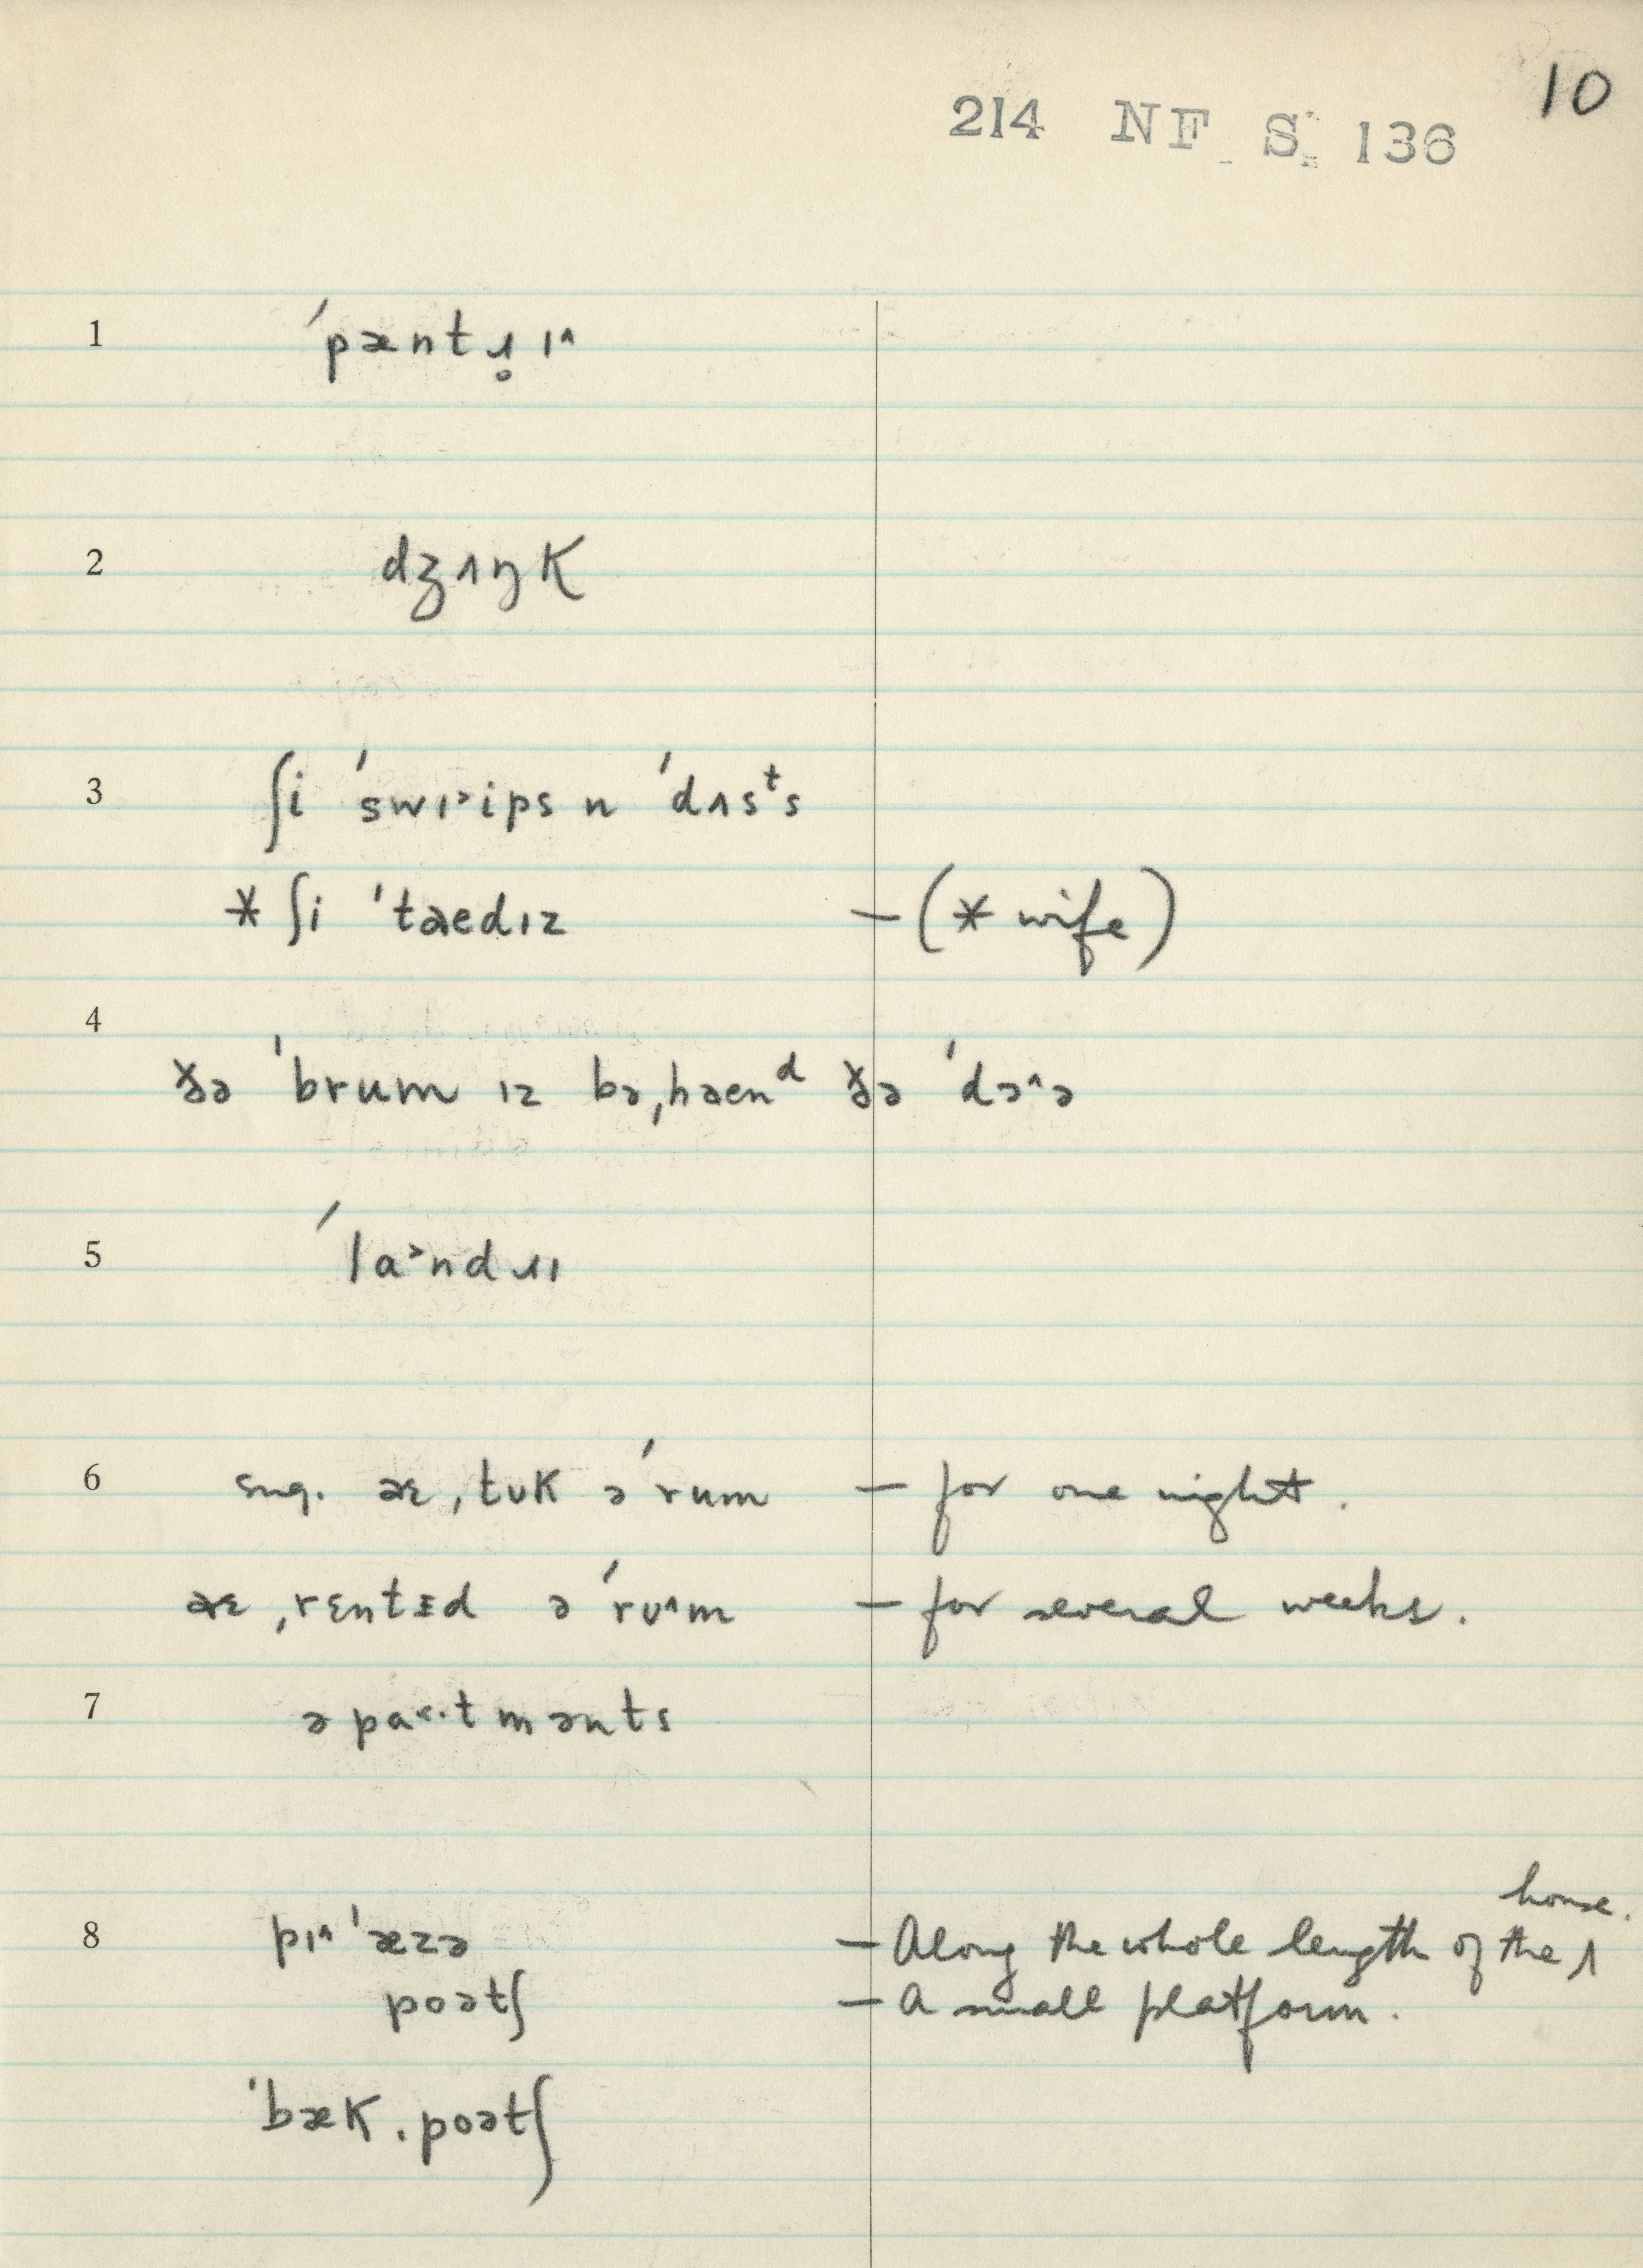 10
214 NF S. 136
1 ˈpæntɹ̥ɪ^
2 dʒʌŋk
3 ʃi ˈswɪ˃ips n ˈdʌsᵗs
* ʃi ˈtaedɪz – (* wife)
4
ðə ˈbrum ɪz bəˌhaenᵈ ðə ˈdɔ^ə
5 ˈla˃ndɹɪ
6 sug. aɛ ˌtʊk ə ˈrum – for one night.
aɛ ˌrɛntɪd ə ˈrʊ^m – for several weeks.
7 əpa˂·tmənts
house.
8 pɪ^ˈæzə – Along the whole length of the ʌ
poətʃ – A small platform.
ˈbækˌpoətʃ